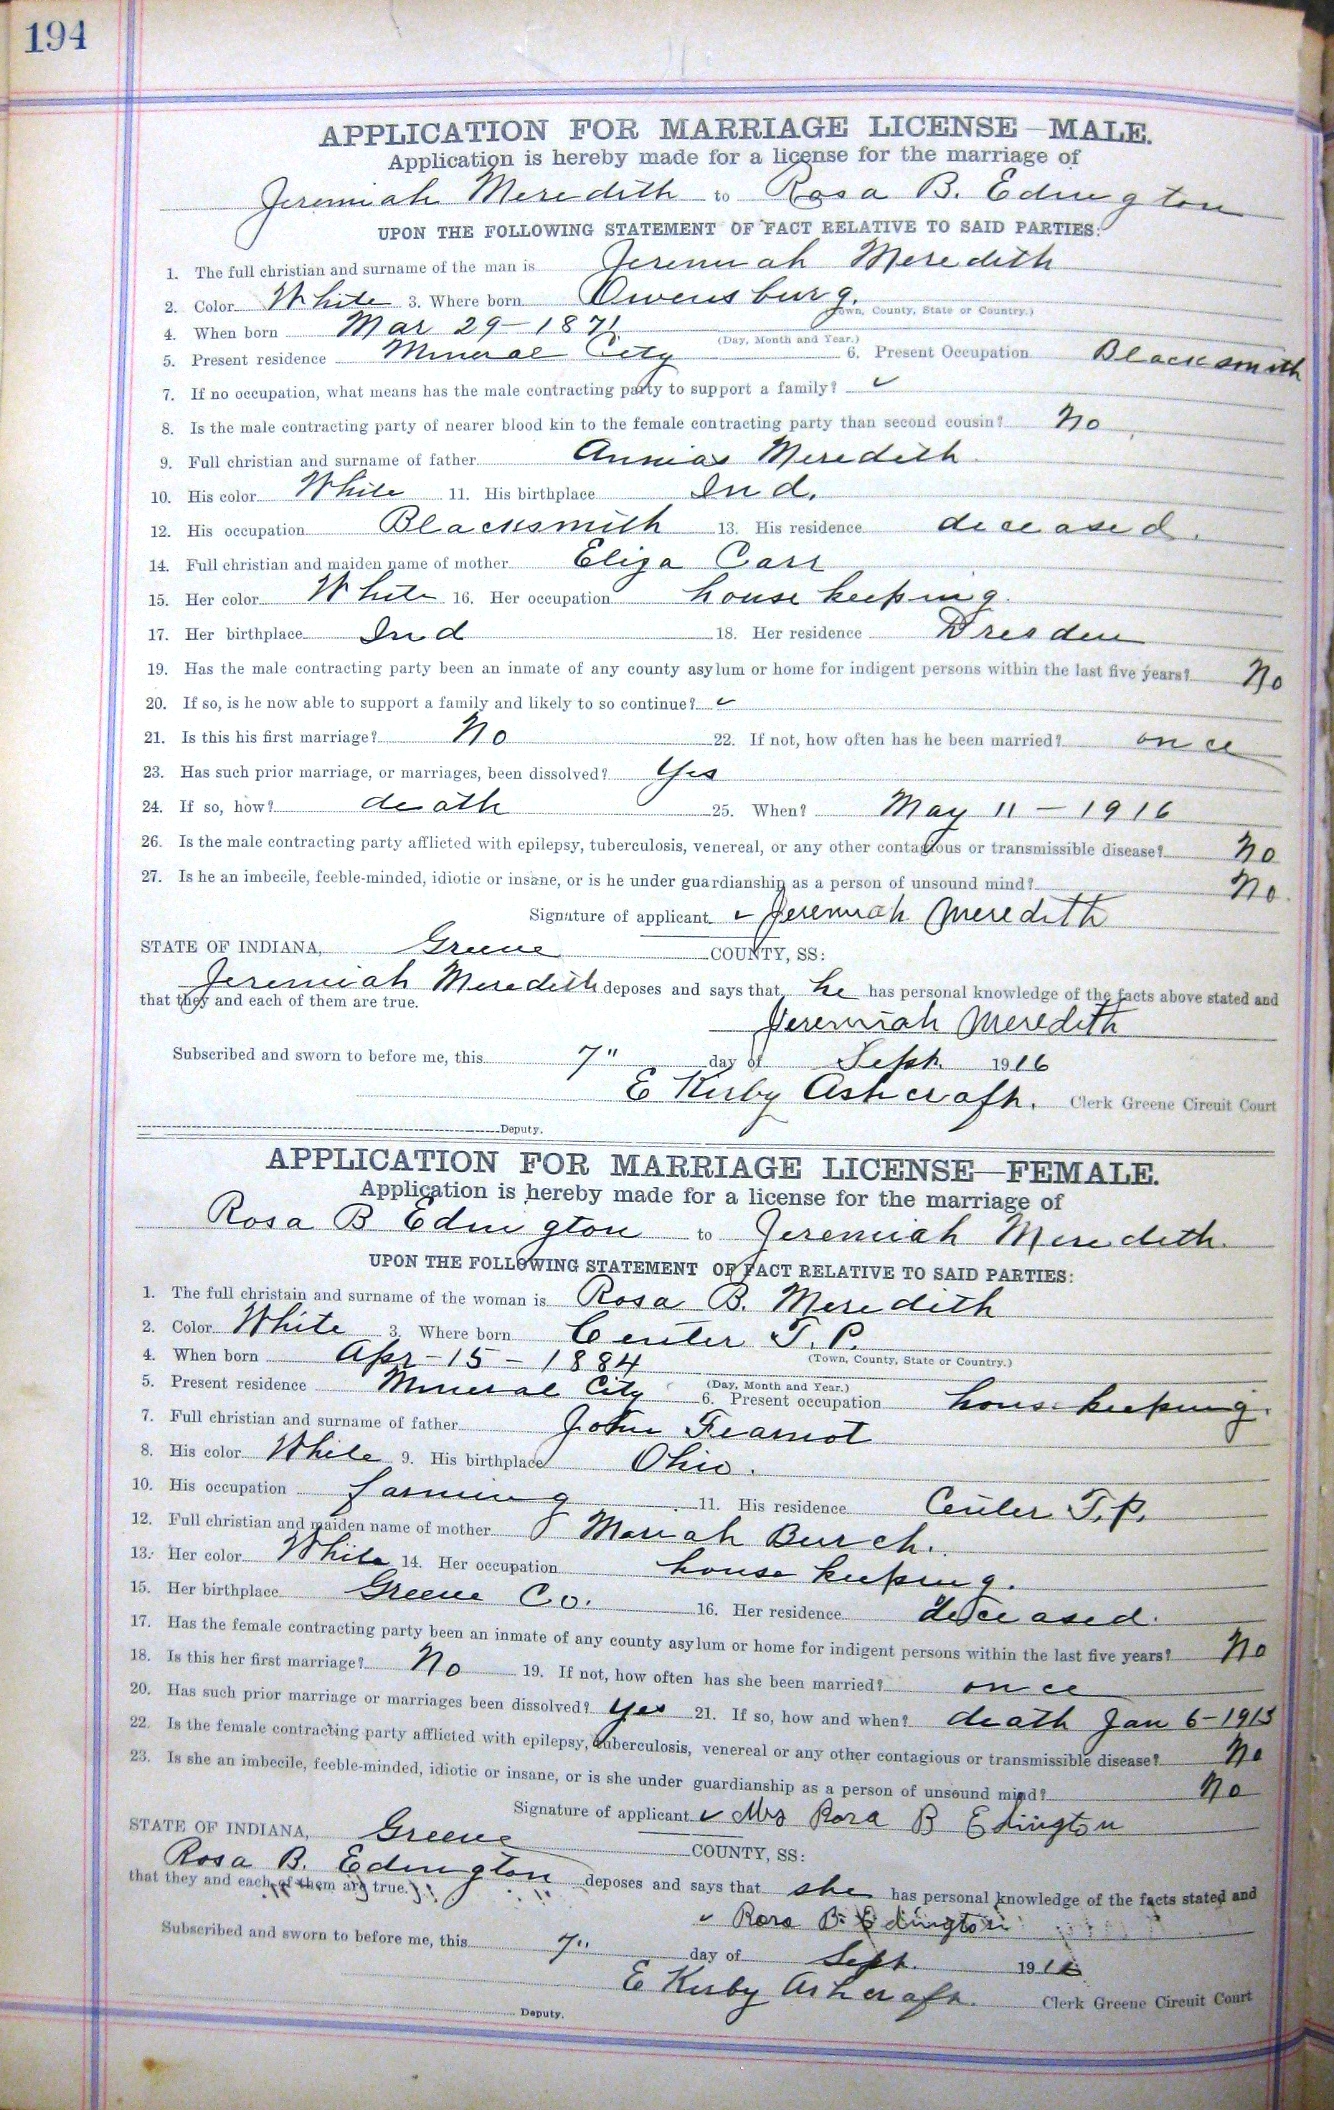 194
APPLICATION FOR MARRIAGE LICENSE—MALE.
Application is hereby made for a license for the marriage of
Jeremiah Meredith to Rosa B. Edington
UPON THE FOLLOWING STATEMENT OF FACT RELATIVE TO SAID PARTIES:
1. The full christian and surname of the man is Jeremiah Meredith
2. Color White 3. Where born Owensburg.
(Town, County, State or Country.)
4. When born Mar 29-1871
(Day, Month and Year.)
5. Present residence Mineral City 6. Present Occupation Blacksmith
7. If no occupation, what means has the male contracting party to support a family? ✓
8. Is the male contracting party of nearer blood kin to the female contracting party than second cousin? No
9. Full christian and surname of father Annias Meredith
10. His color White 11. His birthplace Ind.
12. His occupation Blacksmith 13. His residence deceased.
14. Full christian and maiden name of mother Eliza Carr
15. Her color White 16. Her occupation house keeping.
17. Her birthplace Ind 18. Her residence Dresden
19. Has the male contracting party been an inmate of any county asylum or home for indigent persons within the last five years? No
20. If so, is he now able to support a family and likely to so continue? ✓
21. Is this his first marriage? No 22. If not, how often has he been married? once
23. Has such prior marriage, or marriages, been dissolved? Yes
24. If so, how? death 25. When? May 11-1916
26. Is the male contracting party afflicted with epilepsy, tuberculosis, venereal, or any other contagious or transmissible disease? No
27. Is he an imbecile, feeble-minded, idiotic or insane, or is he under guardianship as a person of unsound mind? No.
Signature of applicant ✓ Jeremiah Meredith
STATE OF INDIANA, Greene COUNTY, SS:
Jeremiah Meredith deposes and says that he has personal knowledge of the facts above stated and
that they and each of them are true.
Jeremiah Meredith
Subscribed and sworn to before me, this 7" day of Sept. 1916
E Kirby Ashcraft. Clerk Greene Circuit Court
Deputy.
APPLICATION FOR MARRIAGE LICENSE—FEMALE.
Application is hereby made for a license for the marriage of
Rosa B Edington to Jeremiah Meredith.
UPON THE FOLLOWING STATEMENT OF FACT RELATIVE TO SAID PARTIES:
1. The full christain and surname of the woman is Rosa B. Meredith
2. Color White 3. Where born Center T.P.
(Town, County, State or Country.)
4. When born Apr-15-1884
(Day, Month and Year.)
5. Present residence Mineral City 6. Present occupation house keeping.
7. Full christian and surname of father John Fearnot
8. His color White 9. His birthplace Ohio.
10. His occupation farming 11. His residence Center T.P.
12. Full christian and maiden name of mother Mariah Burch.
13. Her color White 14. Her occupation house keeping.
15. Her birthplace Greene Co. 16. Her residence deceased.
17. Has the female contracting party been an inmate of any county asylum or home for indigent persons within the last five years? No
18. Is this her first marriage? No 19. If not, how often has she been married? once
20. Has such prior marriage or marriages been dissolved? yes 21. If so, how and when? death Jan 6-1913
22. Is the female contracting party afflicted with epilepsy, tuberculosis, venereal or any other contagious or transmissible disease? No
23. Is she an imbecile, feeble-minded, idiotic or insane, or is she under guardianship as a person of unsound mind? No
Signature of applicant ✓ Mrs Rosa B Edington
STATE OF INDIANA, Greene COUNTY, SS:
Rosa B. Edington deposes and says that she has personal knowledge of the facts stated and
that they and each of them are true.
✓ Rosa B. Edington
Subscribed and sworn to before me, this 7" day of Sept. 1916
E Kirby Ashcraft. Clerk Greene Circuit Court
Deputy.